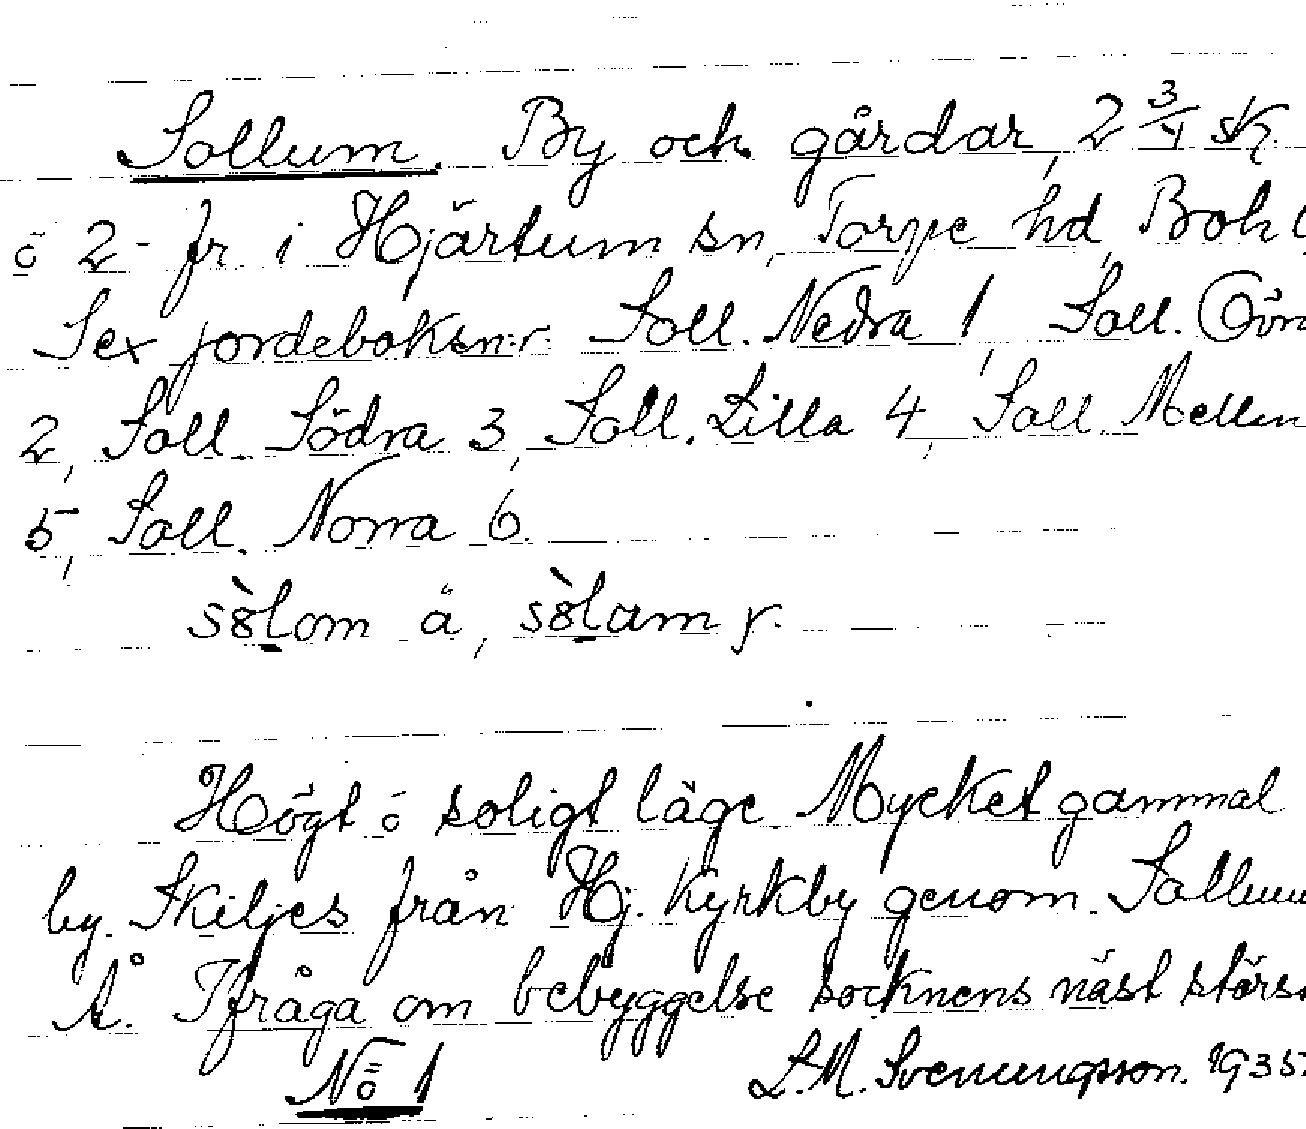 Sollum. By och gårdar, 2 3/4 sk.
ö 2 - fr i Hjärtum sn, Torpe hd, Boh l
Sex jordeboksn:r. Soll. Nedra 1, Soll. Övra
2, Soll. Södra 3, Soll. Lilla 4, Soll. Mellan
5, Soll. Norra 6.
Högt ö soligt läge Mycket gammal
by. Skiljes från Hj. Kyrkby genom Sollum
Å. Ifråga om bebyggelse socknens näst störs
No 1
L.M. Svenungsson. 1935.